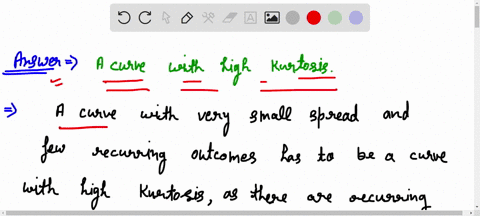 Answer => A curve with high Kurtosis.
=> A curve with very small spread and
few recurring outcomes has to be a curve
with high Kurtosis, as there are occurring